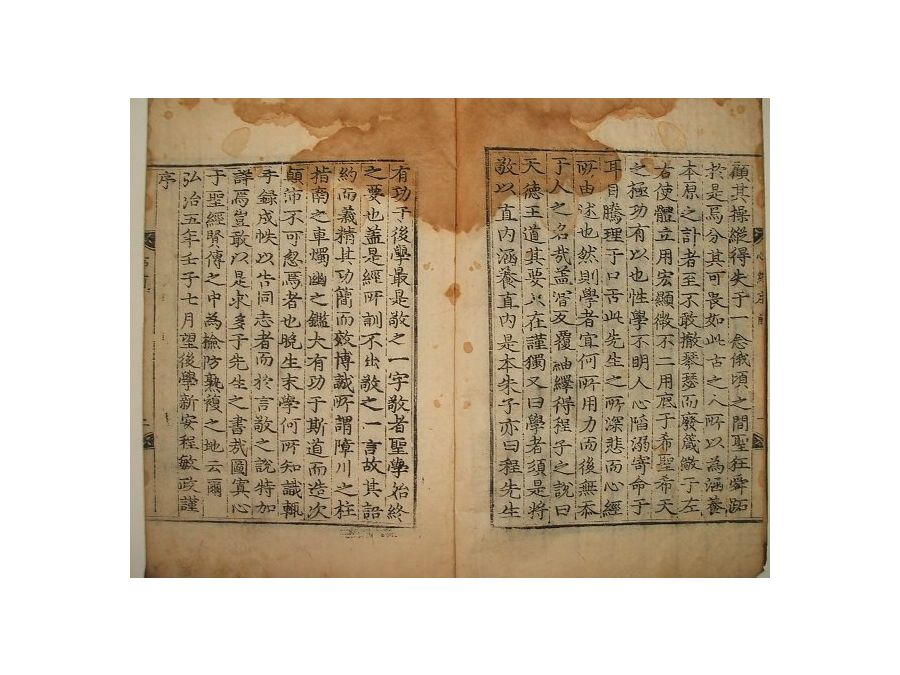 顧其操縱得失于一念俄頃之間聖狂舜跖
於是焉分其可畏如此古之人所以為涵養
本原之計者至不敢撤琴瑟而廢箴儆于左
右使體立用宏顯微不二用底于希聖希天
之極功有以也性學不明人心陷溺寄命于
耳目騰理于口舌此先生之所深悲而心經
所由述也然則學者宜何所用力而後無忝
于人之名哉盖嘗反覆紬繹得程子之說曰
天德王道其要只在謹獨又曰學者須是將
敬以直內涵養直內是本朱子亦曰程先生
有功于後學最是敬之一字敬者聖學始終
之要也盖是經所訓不出敬之一言故其詔
約而義精其功簡而效博誠所謂障川之柱
指南之車燭幽之鑑大有功于斯道而造次
顛沛不可忽焉者也晚生末學何所知識輒
手録成帙以告同志者而於言敬之說特加
詳焉豈敢以是求多于先生之書哉圖寘心
于聖經賢傳之中為檢防熟複之地云爾
弘治五年壬子七月望後學新安程敏政謹
序